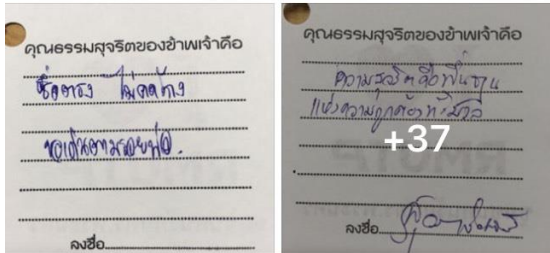 คุณธรรมสุจริตของข้าพเจ้าคือ
ซื่อตรง ไม่คดโกง
ขอเดินตามรอยพ่อ.
ลงชื่อ
คุณธรรมสุจริตของข้าพเจ้าคือ
ความสุจริตคือพื้นฐาน
แห่งความถูกต้อง
+37
ลงชื่อ